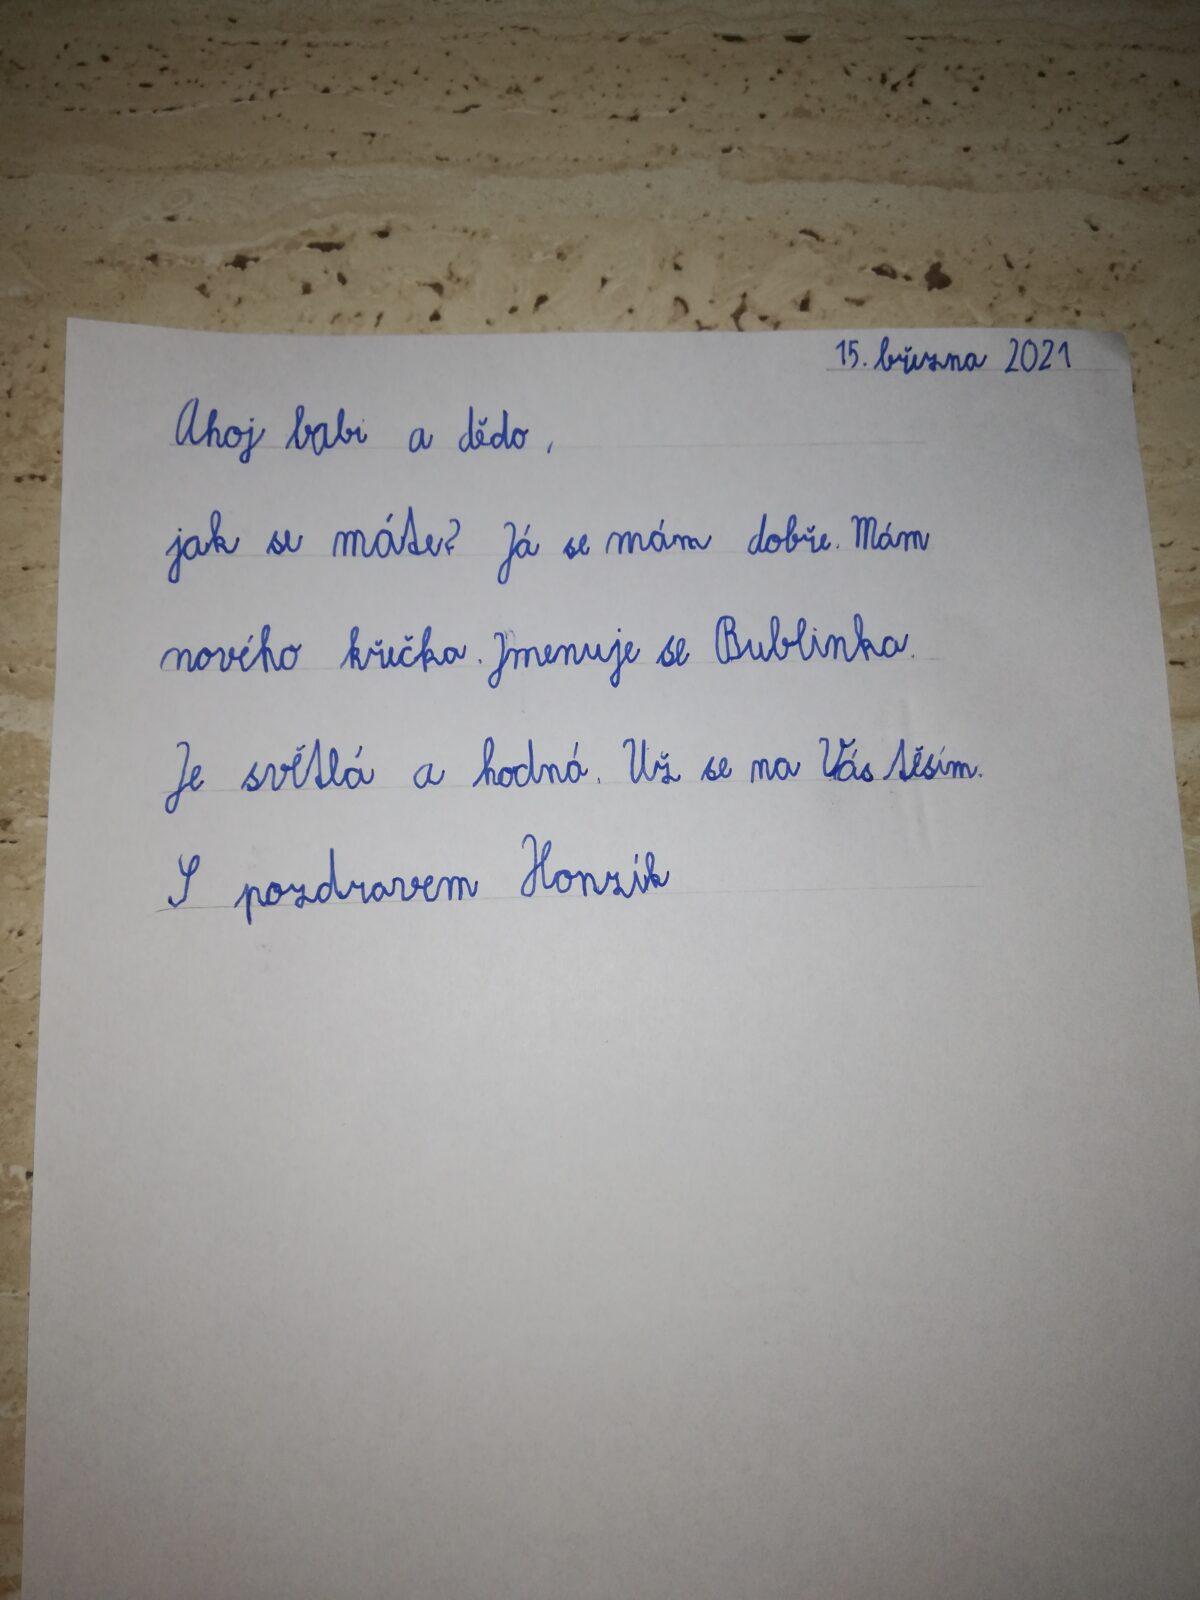 15. března 2021
Ahoj babi a dědo,
jak se máte? Já se mám dobře. Mám
nového křečka. Jmenuje se Bublinka.
Je světlá a hodná. Už se na Vás těším.
S pozdravem Honzík